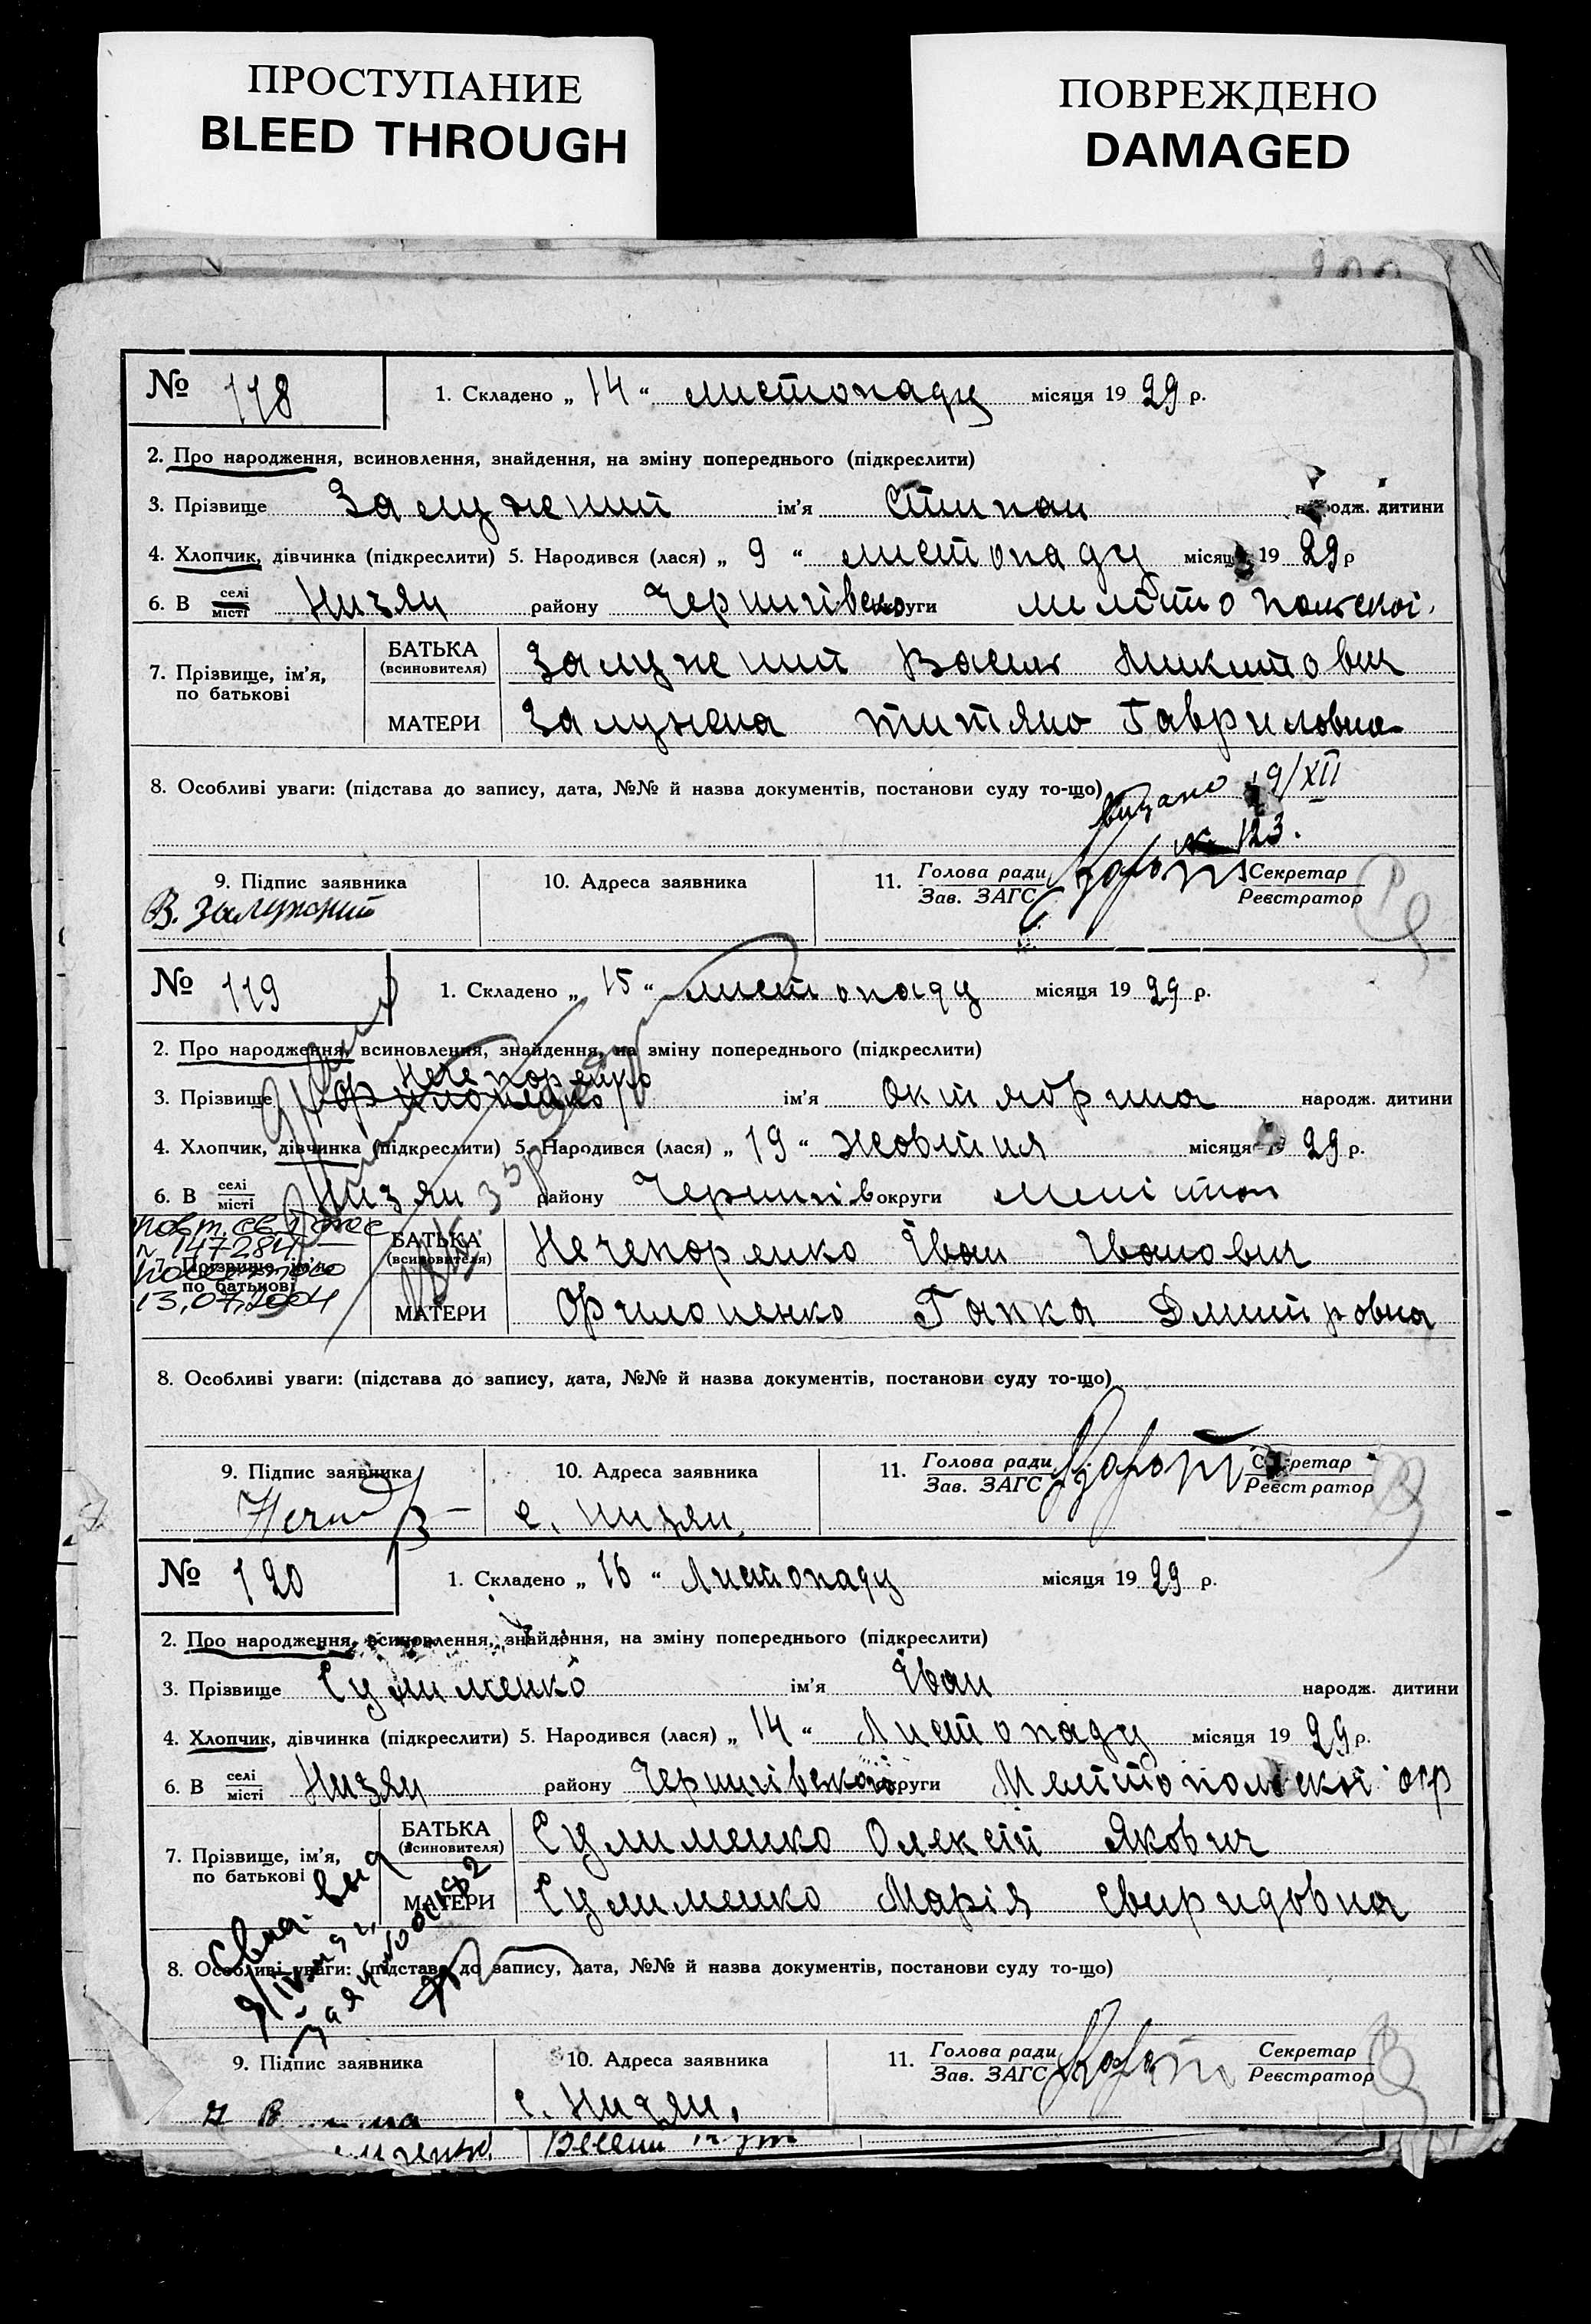 ПРОСТУПАНИЕ
BLEED THROUGH
ПОВРЕЖДЕНО
DAMAGED
№ 118 1. Складено „ 14 “ листопаду місяця 19 29 р.
2. Про народження, всиновлення, знайдення, на зміну попереднього (підкреслити)
3. Прізвище Залужений ім'я Стипан народж. дитини
4. Хлопчик, дівчинка (підкреслити) 5. Народився (лася) „ 9 “ листопаду місяця 19 29 р
6. В селі місті Низян району Чернигівско округи Мелітопольскоі
7. Прізвище, ім'я, по батькові
БАТЬКА (всиновителя) Залужений Василь Микитович
МАТЕРИ Залужена Титяно Гавриловна
8. Особливі уваги: (підстава до запису, дата, №№ й назва документів, постанови суду то-що)
видано 19/XII
123.
9. Підпис заявника 10. Адреса заявника 11. Голова ради Зав. ЗАГС Секретар Реєстратор
В. Залужний
№ 119 1. Складено „ 15 “ листопаду місяця 19 29 р.
2. Про народження, всиновлення, знайдення, на зміну попереднього (підкреслити)
Нечепоренко
3. Прізвище Офилопенко ім'я Октябрина народж. дитини
4. Хлопчик, дівчинка (підкреслити) 5. Народився (лася) „ 19 “ жовтня місяця 19 29 р.
6. В селі місті Низян району Чернигів округи Меліто
повт. св.
13.07.2004
7. Прізвище, ім'я, по батькові
БАТЬКА (всиновителя) Нечепоренко Іван Іванович
МАТЕРИ Офилопенко Гапка Дмитровна
8. Особливі уваги: (підстава до запису, дата, №№ й назва документів, постанови суду то-що)
9. Підпис заявника 10. Адреса заявника 11. Голова ради Зав. ЗАГС Секретар Реєстратор
с. Низян.
№ 120 1. Складено „ 16 “ Листопаду місяця 19 29 р.
2. Про народження, всиновлення, знайдення, на зміну попереднього (підкреслити)
3. Прізвище Сулименко ім'я Іван народж. дитини
4. Хлопчик, дівчинка (підкреслити) 5. Народився (лася) „ 14 “ Листопаду місяця 19 29 р.
6. В селі місті Низян району Чернигівскоі округи Мелітопольскоі окр
7. Прізвище, ім'я, по батькові
БАТЬКА (всиновителя) Сулименко Олексій Якович
МАТЕРИ Сулименко Марія Свиридовна
8. Особливі уваги: (підстава до запису, дата, №№ й назва документів, постанови суду то-що)
9. Підпис заявника 10. Адреса заявника 11. Голова ради Зав. ЗАГС Секретар Реєстратор
с. Низян.